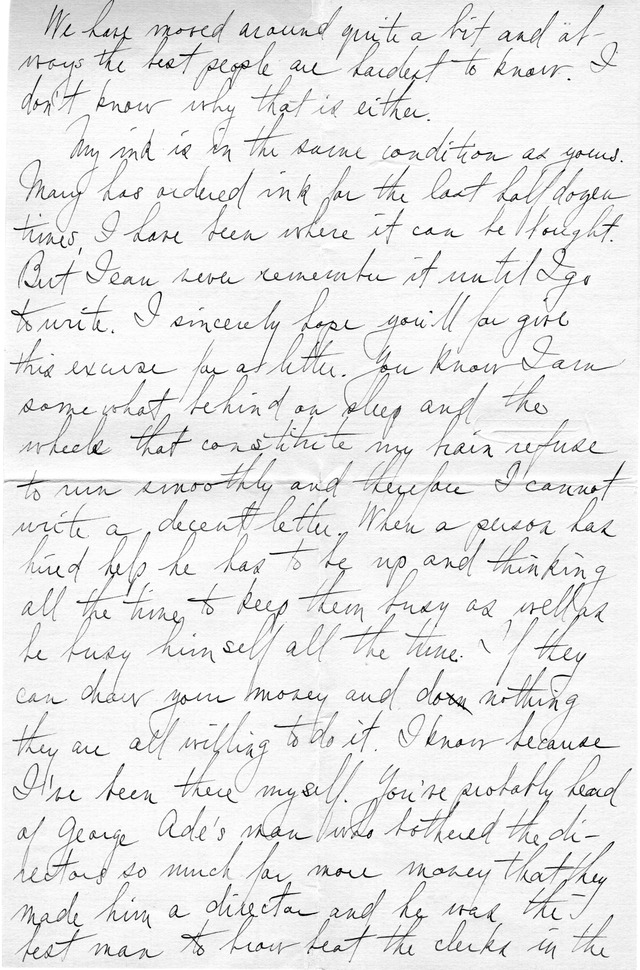 We have moved around quite a bit and al-
ways the best people are hardest to know. I
don't know why that is either.
My ink is in the same condition as yours.
Mary has ordered ink for the last half dozen
times, I have been where it can be bought.
But I can never remember it until I go
to write. I sincerely hope you'll for give
this excuse for a letter. You know I am
somewhat behind on sleep and the
wheels that constitute my brain refuse
to run smoothly and therefore I cannot
write a decent letter. When a person has
hired help he has to be up and thinking
all the time to keep them busy as well as
be busy himself all the time. If they
can draw your money and do nothing
they are all willing to do it. I know because
I've been there myself. You've probably heard
of George Ade's man who bothered the di-
rectors so much for more money that they
made him a director and he was the
best man to brow beat the clerks in the